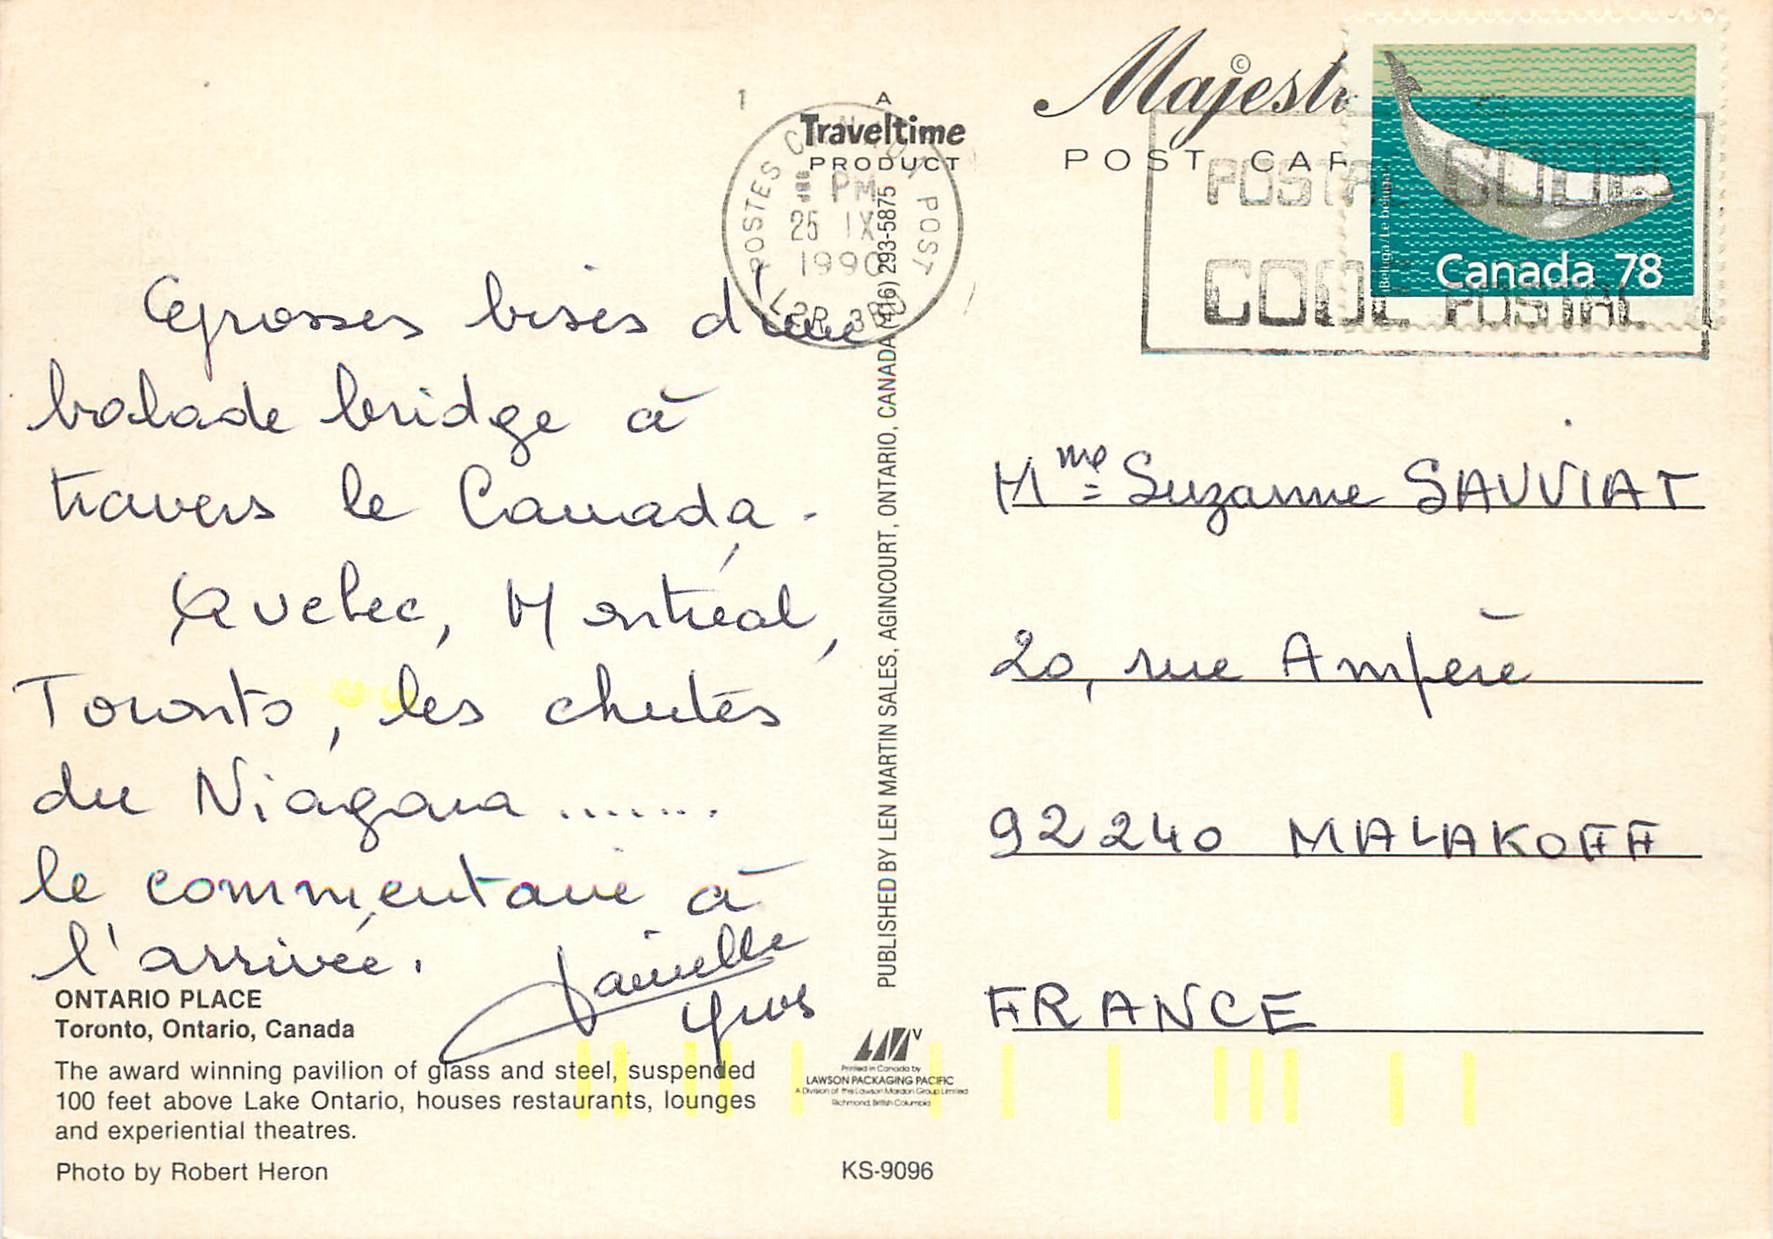 Grosses bises d'une
balade bridge à
travers le Canada.
Quebec, Montréal,
Toronto, les chutes
du Niagara .......
le commentaire à
l'arrivée.
Danielle
Yves
ONTARIO PLACE
Toronto, Ontario, Canada
The award winning pavilion of glass and steel, suspended
100 feet above Lake Ontario, houses restaurants, lounges
and experiential theatres.
Photo by Robert Heron
1
A
Traveltime
PRODUCT
POSTES CANADA POST
PM
25 IX
1990
L2R 3B0
PUBLISHED BY LEN MARTIN SALES, AGINCOURT, ONTARIO, CANADA (416) 293-5875
Printed in Canada by
LAWSON PACKAGING PACIFIC
A Division of the Lawson Mardon Group Limited
Richmond, British Columbia
KS-9096
©
Majesti
POST CAR
POSTAL CODE
CODE POSTAL
Beluga/Le béluga
Canada 78
Mme Suzanne SAUVIAT
20, rue Ampère
92240 MALAKOFF
FRANCE